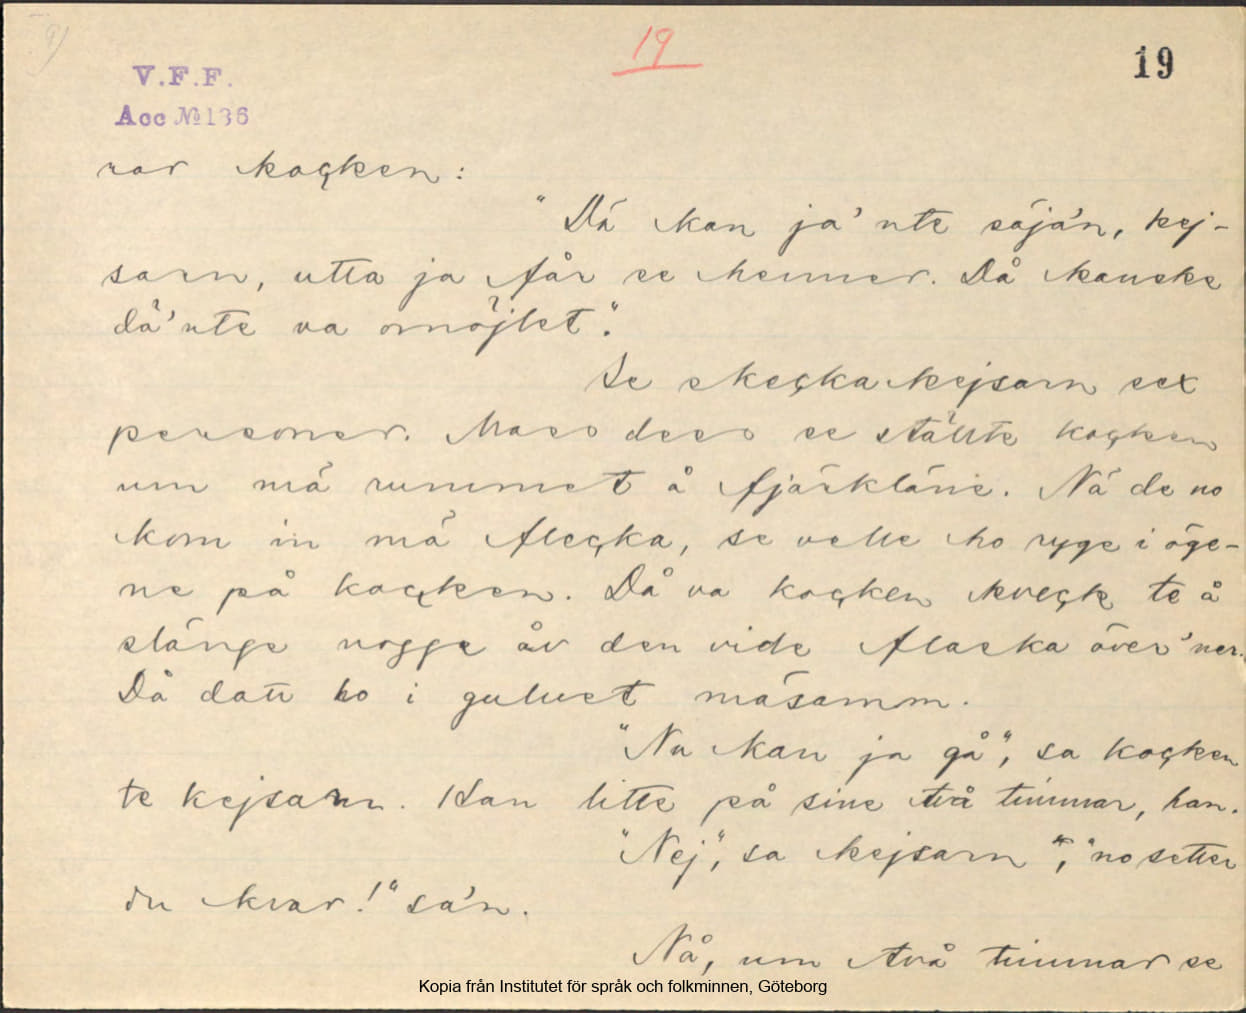 9)
19
19
V.F.F.
Acc № 136
rar koçken:
"Dä kan ja' nte säjä'n, kej-
sarn, utta ja får se henner. Då kanske
dä' nte va omöjlet".
Se skeçka kejsarn sex
personer. Maeo deso se ställte koçken
um mä rummet å fjärkläne. Nä de no
kom in mä fleçka, se velle ho ryge i öge-
ne på koçken. Då va koçken kveçk te å
slänge nogge åv den vide flaska över'ner.
Då datt ho i gulvet mäsamm.
"Nu kan ja gå", sa koçken
te kejsarn. Han litte på sine två timmar, han.
"Nej", sa kejsarn, "no setter
du kvar!" sa'n.
Nå, um två timmar se
Kopia från Institutet för språk och folkminnen, Göteborg